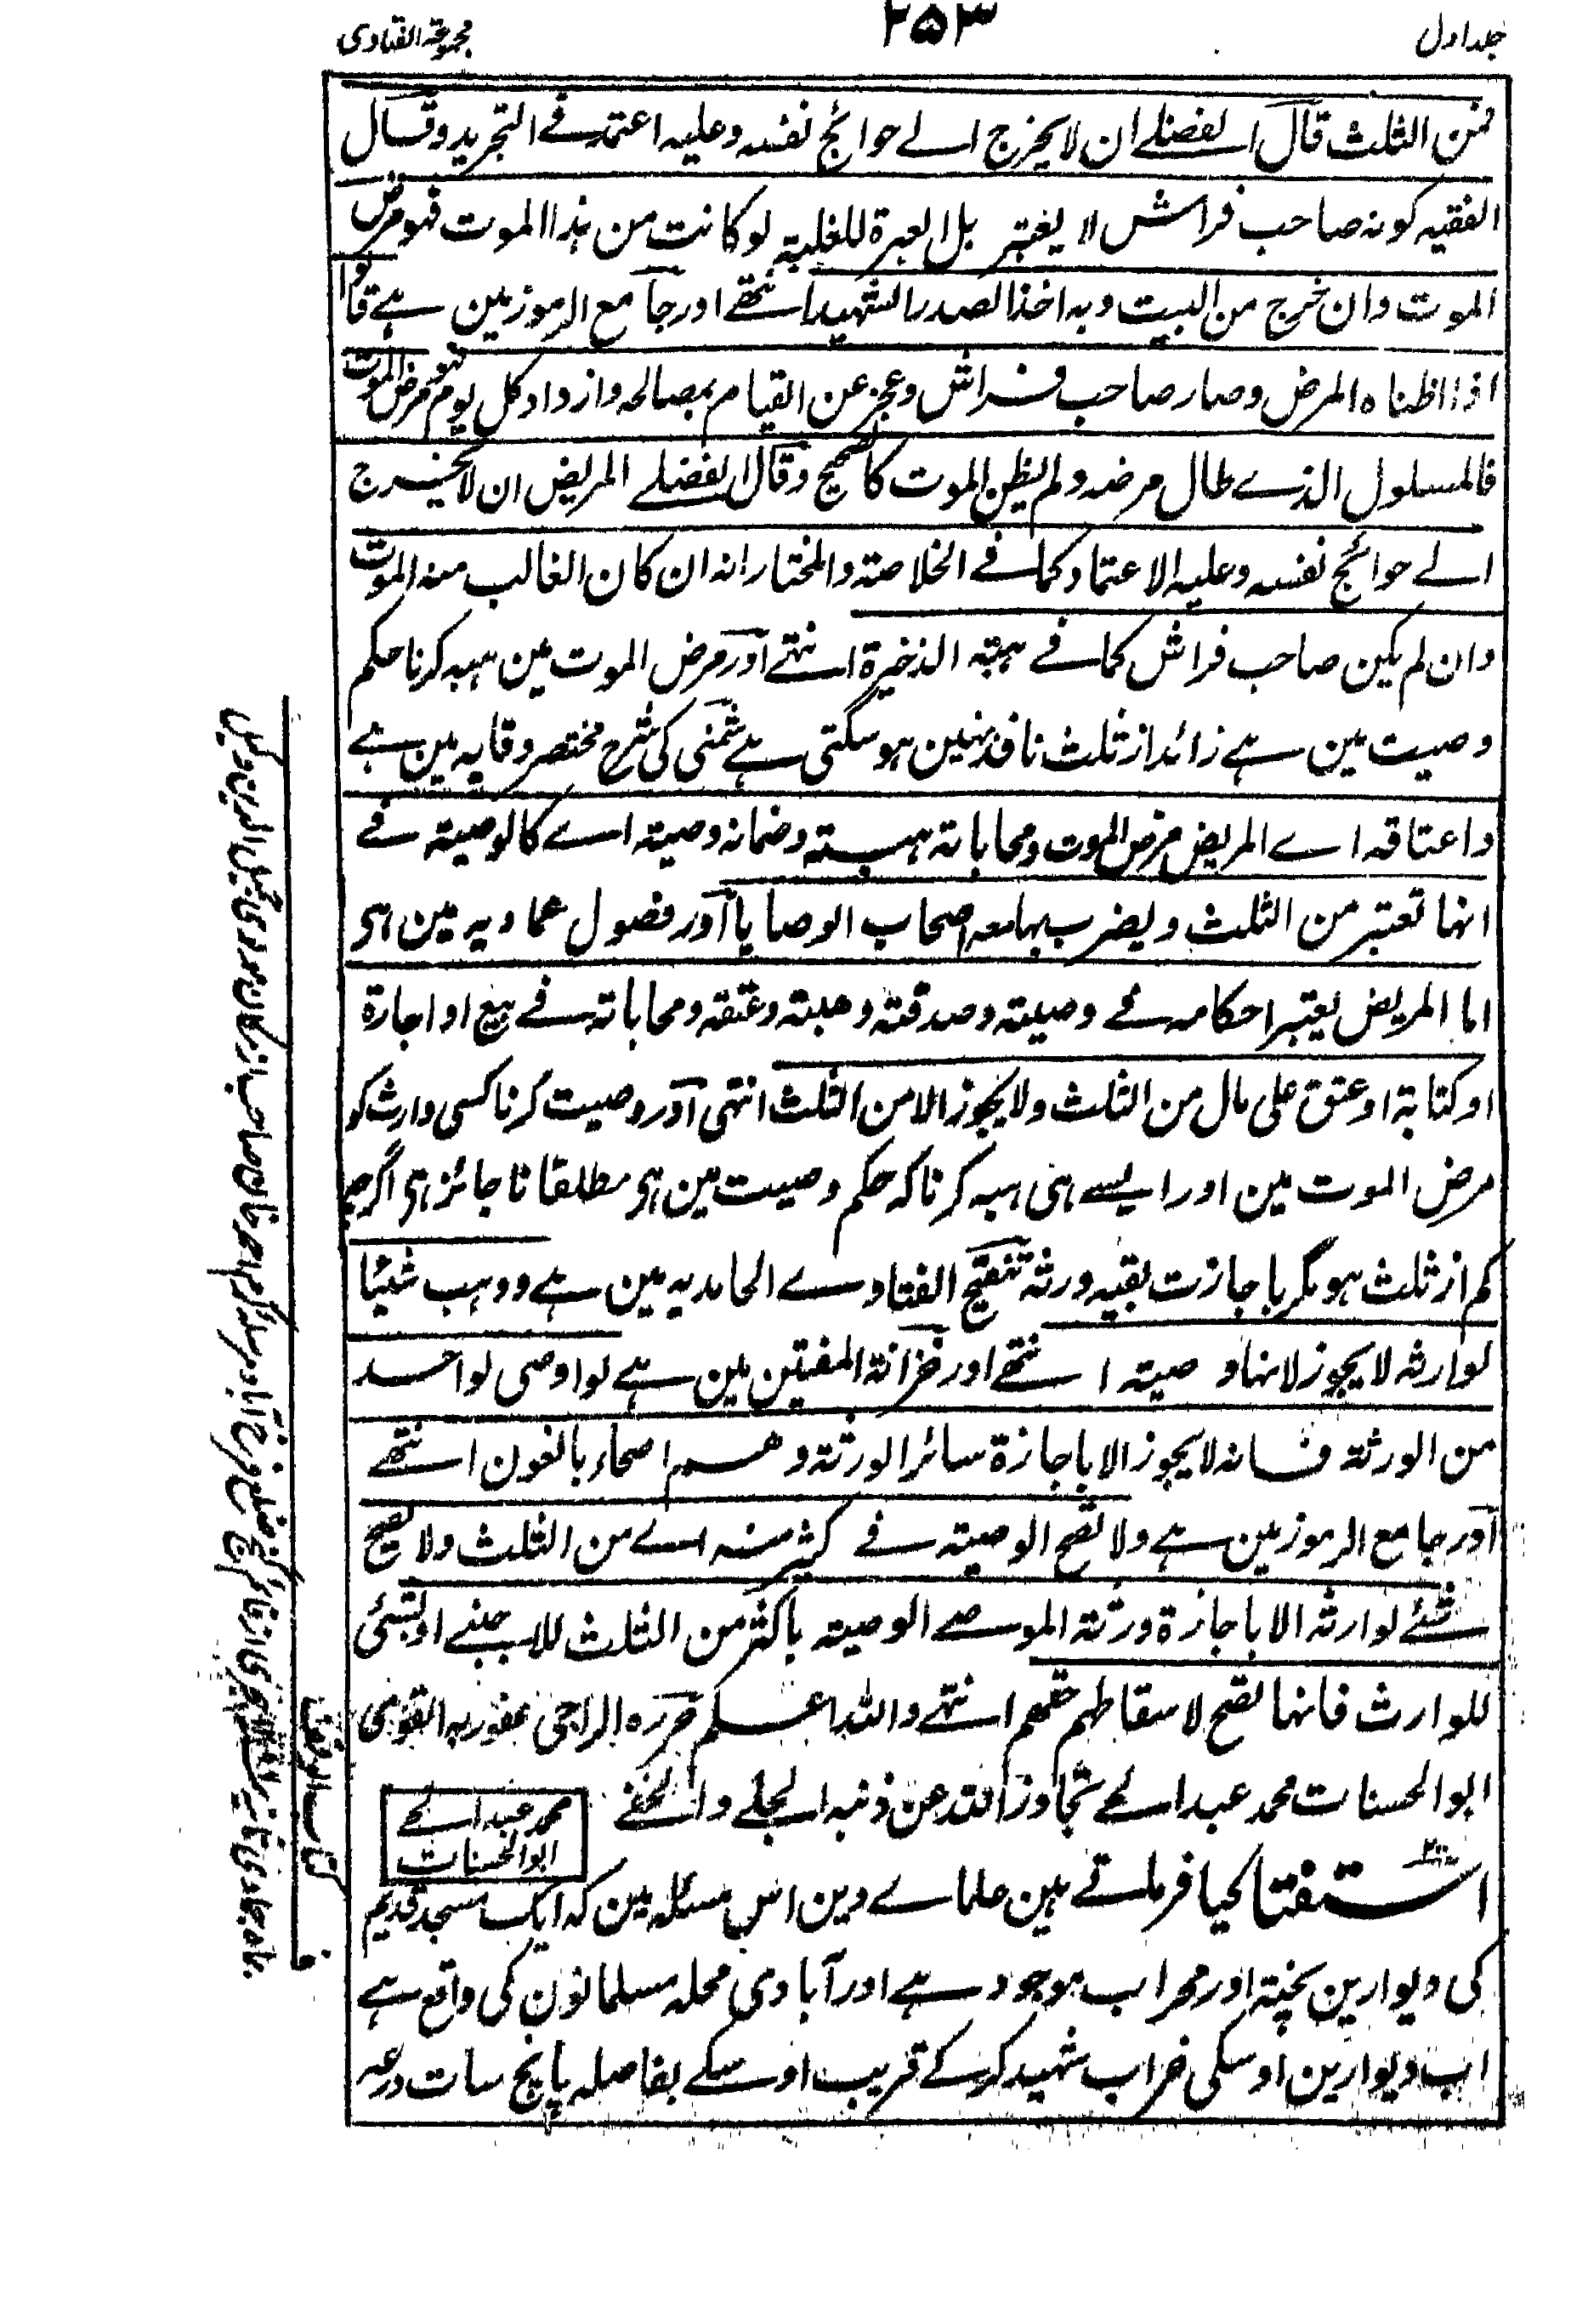 جلد اول
۲۵۳
مجموعۃ الفتاوی
فمن الثلث قال الفضلے ان لا یخرج الے حوائج نفسہ وعلیہ اعتمد فے التجرید وقال
الفقیہ کونہ صاحب فراش لا یعتبر بل العبرۃ للغلبۃ لو کانت من ہذا الموت فہو مرض
الموت وان خرج من البیت وبہ اخذ الصدر الشہید انتھے اور جامع الرموز مین ہے قالوا
اذا اظناہ المرض وصار صاحب فراش وعجز عن القیام بمصالحہ وازداد کل یوم فہو مرض الموت
فالمسلول الذے طال مرضہ ولم یظن الموت کالصحیح وقال الفضلے المریض ان لا یخرج
الے حوائج نفسہ وعلیہ الاعتماد کما فے الخلاصۃ والمختار انہ ان کان الغالب منہ الموت
وان لم یکن صاحب فراش کما فے ہبۃ الذخیرۃ انتہے اور مرض الموت مین ہبہ کرنا حکم
وصیت مین ہے زائد از ثلث نافذ نہین ہو سکتی ہے شمنی کی شرح مختصر وقایہ مین ہے
واعتاقہ اے المریض مرض الموت ومحاباتہ ہبتہ وضمانہ وصیتہ اے کالوصیتہ فے
انہا تعتبر من الثلث ویضرب بہا معہ اصحاب الوصایا اور فصول عمادیہ مین ہی
اما المریض یعتبر احکامہ فے وصیتہ وصدقتہ وھبتہ وعتقہ ومحاباتہ فے بیع او اجارۃ
او کتابۃ او عتق علی مال من الثلث ولا یجوز الا من الثلث انتہی اور وصیت کرنا کسی وارث کو
مرض الموت مین اور ایسے ہی ہبہ کرنا کہ حکم وصیت مین ہی مطلقا نا جائز ہی اگرچہ
کم از ثلث ہو مگر باجازت بقیہ ورثہ تنقیح الفتاوے الحامدیہ مین ہے ووہب شیئا
لوارثہ لا یجوز لانہا وصیتہ انتھے اور خزانۃ المفتین مین ہے لو اوصی لواحد
من الورثۃ فانہ لا یجوز الا باجازۃ سائر الورثۃ وھم اصحاء بالغون انتھے
اور جامع الرموز مین ہے ولا تصح الوصیتہ فے کثیر منہ اے من الثلث ولا تصح
شئے لوارثہ الا باجازۃ ورثۃ الموصے الوصیتہ باکثر من الثلث للاجنبے او بشئی
للوارث فانہا تصح لاسقاطہم حقہم انتہے واللہ اعلم حررہ الراجی عفو ربہ القوی
ابو الحسنات محمد عبد الحے تجاوز اللہ عن ذنبہ الجلے والخفے
محمد عبد الحے
ابو الحسنات
استفتا کیا فرماتے ہین علماے دین اس مسئلہ مین کہ ایک مسجد قدیم
کی دیوارین پختہ اور محراب موجود ہے اور آبادی محلہ مسلمانون کی واقع ہے
اب دیوارین اوسکی خراب شہید کرکے قریب اوسکے بفاصلہ پانچ سات درعہ